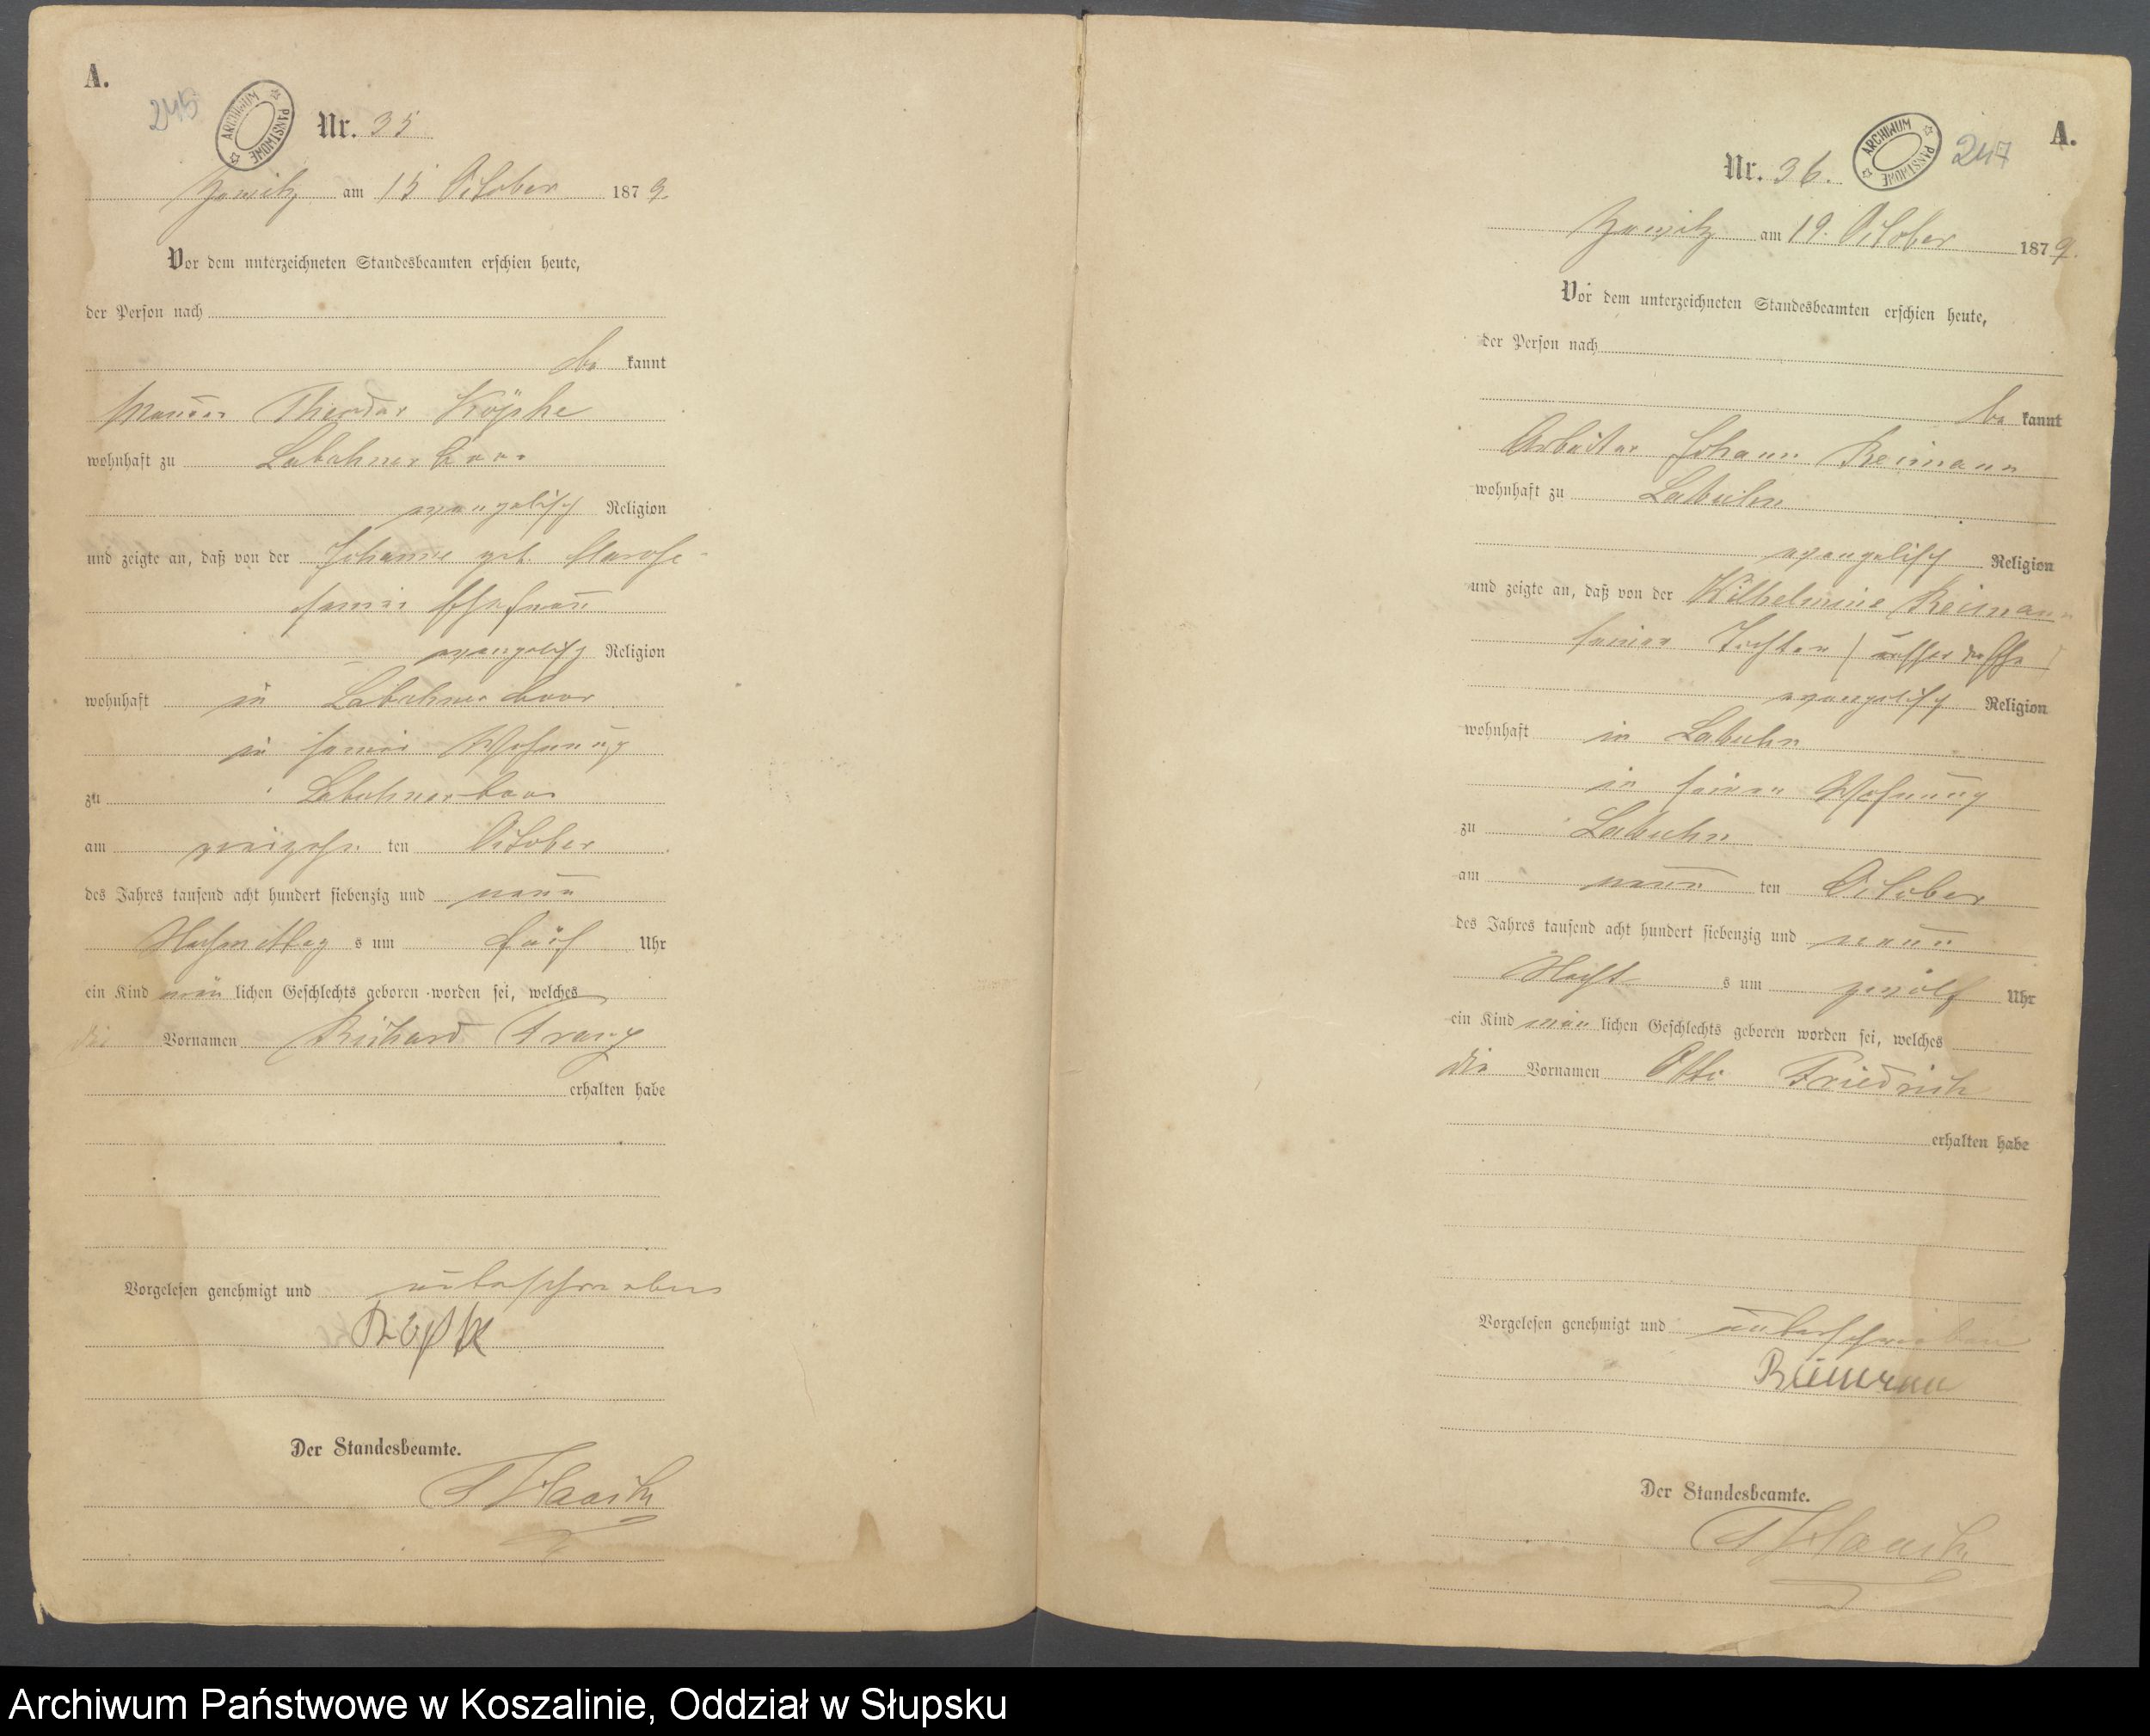 A.
245
ARCHIWUM PAŃSTWOWE
Nr. 35
Zewitz am 15 October 1879.
Vor dem unterzeichneten Standesbeamten erschien heute,
der Person nach
be kannt
Theodor Köpke
wohnhaft zu
evangelisch Religion
und zeigte an, daß von der Johanne geb.
seiner Ehefrau
evangelisch Religion
wohnhaft in
in seiner Wohnung
zu
am ten October
des Jahres tausend acht hundert siebenzig und neun
Nachmittag s um fünf Uhr
ein Kind män lichen Geschlechts geboren worden sei, welches
die Vornamen Richard Franz
erhalten habe
Vorgelesen genehmigt und unterschrieben
Köpke
Der Standesbeamte.
A.
247
ARCHIWUM PAŃSTWOWE
Nr. 36.
Zewitz am 19. October 1879.
Vor dem unterzeichneten Standesbeamten erschien heute,
der Person nach
be kannt
Arbeiter Johann Reimann
wohnhaft zu Labuhn
evangelisch Religion
und zeigte an, daß von der Wilhelmine Reimann
seiner Tochter (ausser der Ehe)
evangelisch Religion
wohnhaft in Labuhn
in seiner Wohnung
zu Labuhn
am neun ten October
des Jahres tausend acht hundert siebenzig und neun
Nacht s um zwölf Uhr
ein Kind män lichen Geschlechts geboren worden sei, welches
die Vornamen Otto Friedrich
erhalten habe
Vorgelesen genehmigt und unterschrieben
Reimann
Der Standesbeamte.
Archiwum Państwowe w Koszalinie, Oddział w Słupsku